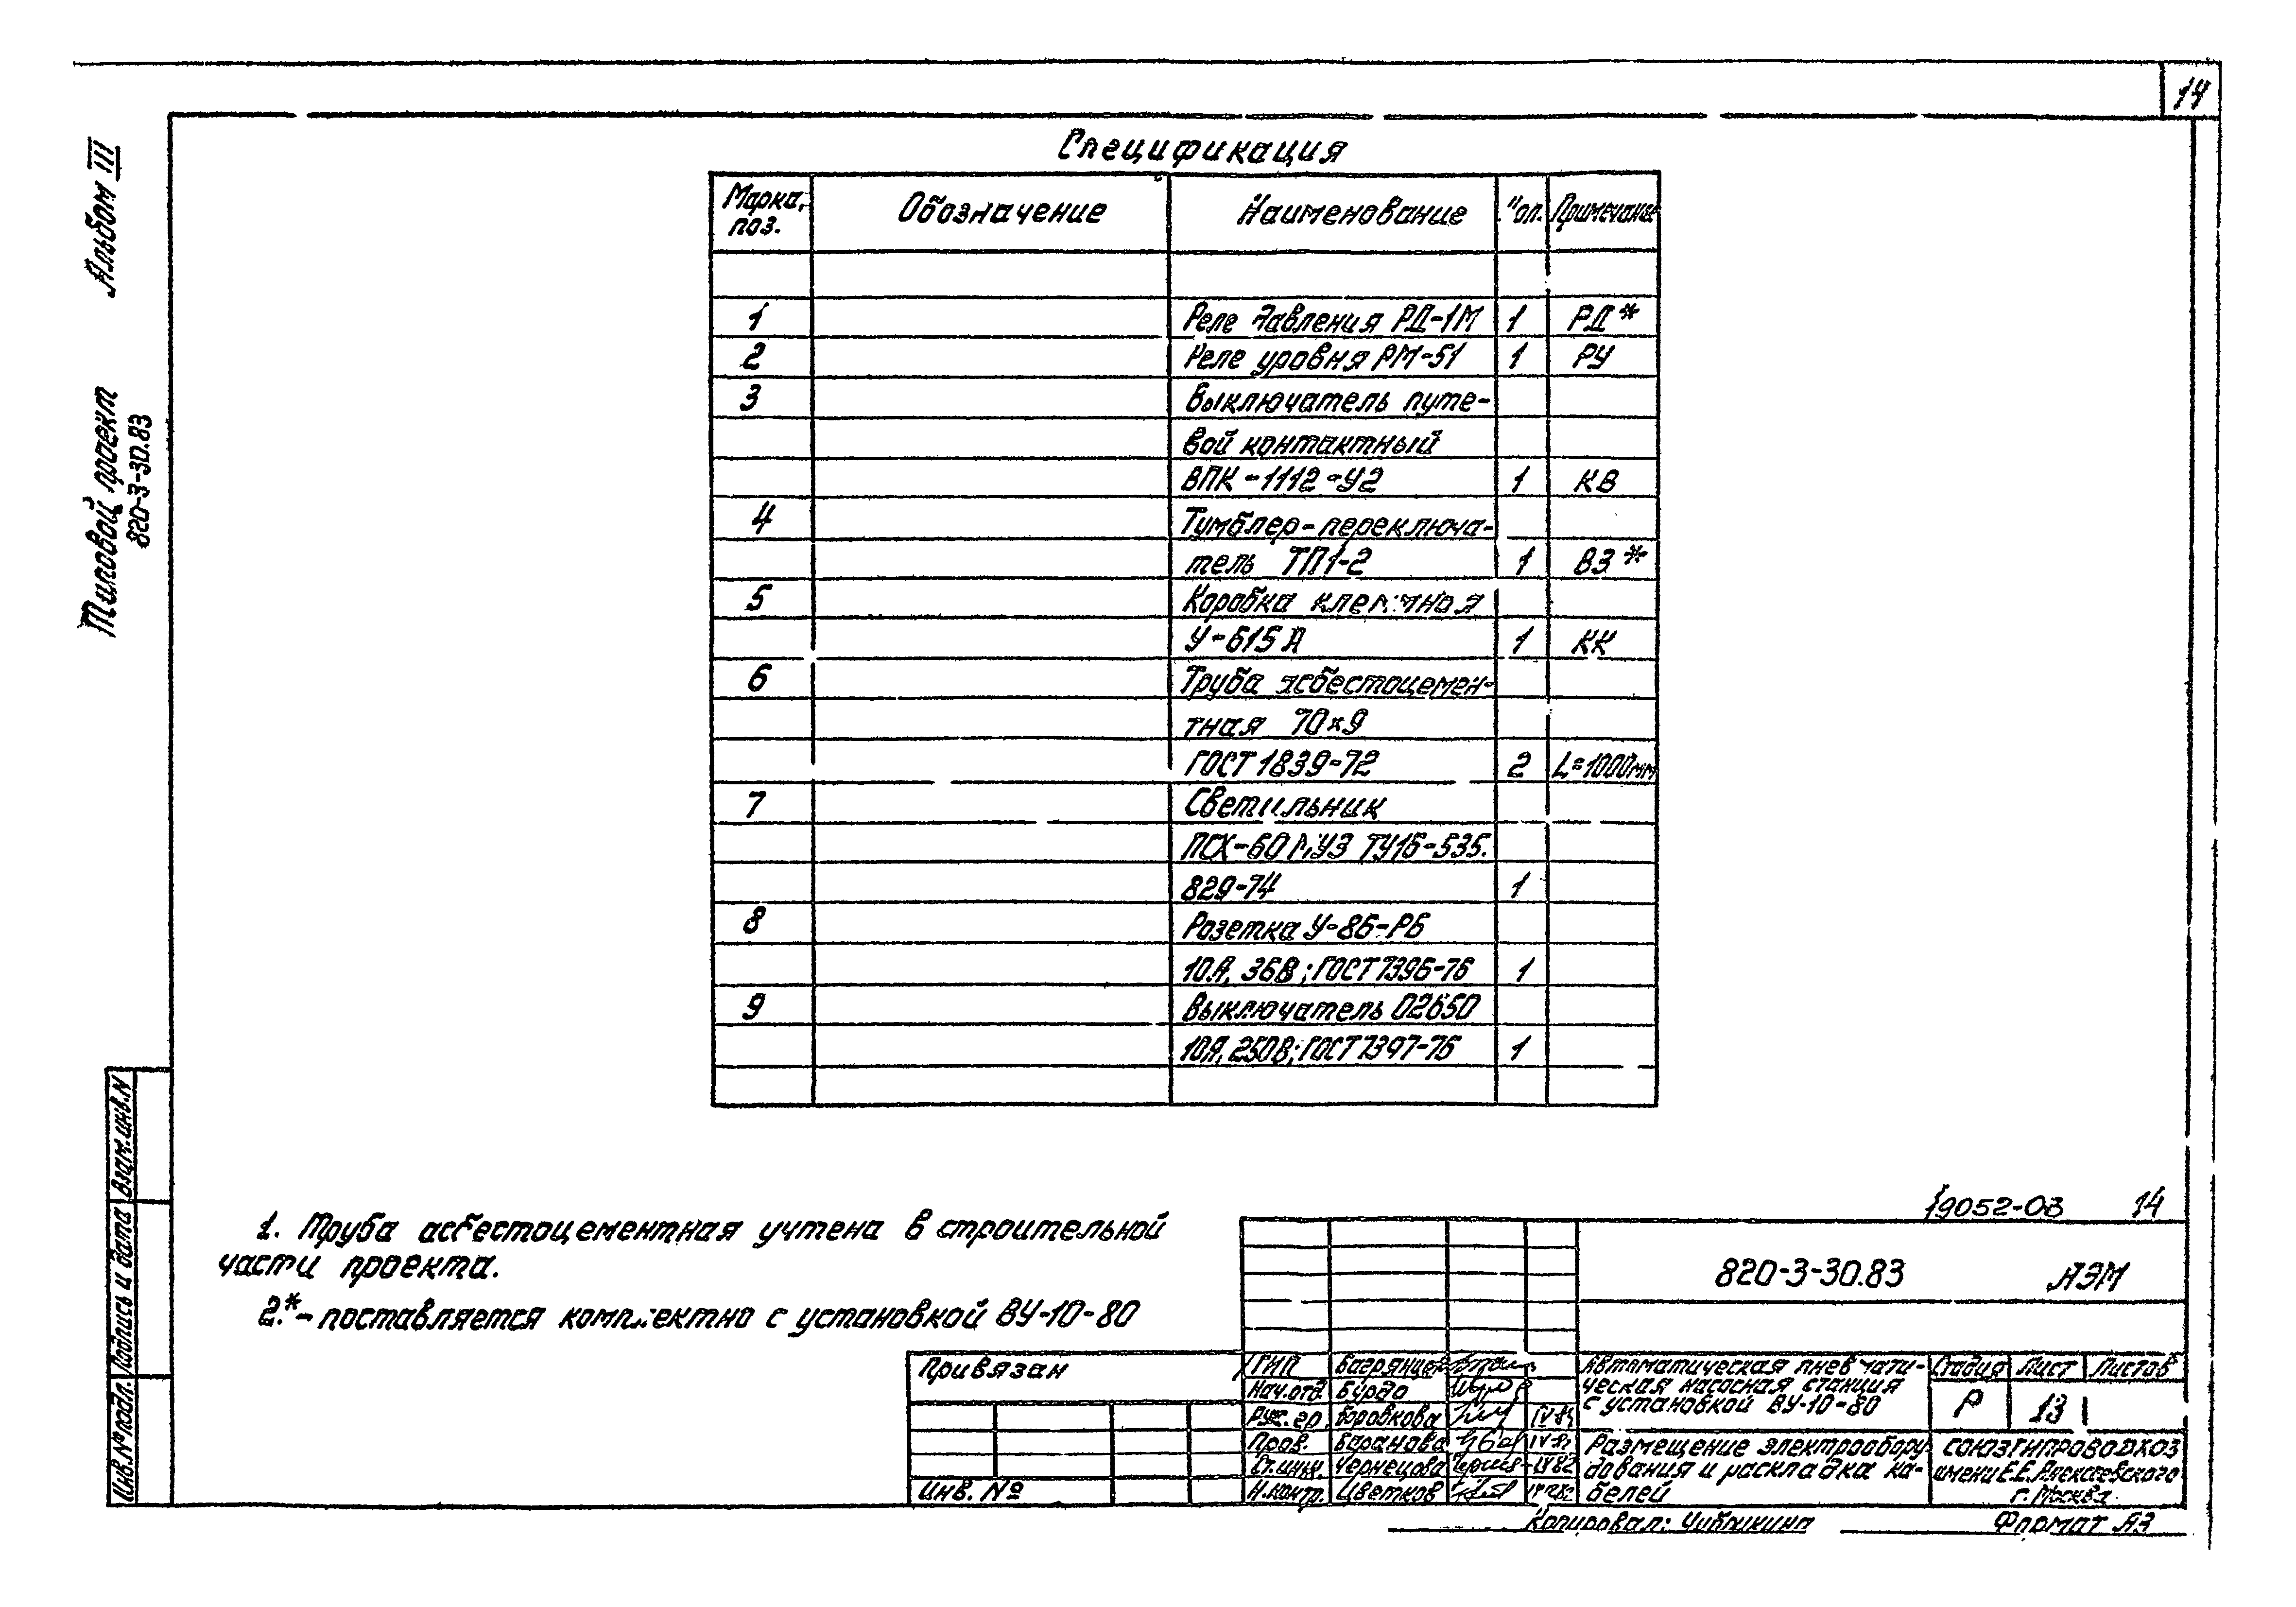 14
Альбом III
Типовой проект
820-3-30.83
Спецификация
Марка, поз. Обозначение Наименование Кол. Примечание
1 Реле давления РД-1М 1 РД*
2 Реле уровня РМ-51 1 РУ
3 Выключатель путе-
вой контактный
ВПК-1112-У2 1 КВ
4 Тумблер-переключа-
тель ТП1-2 1 ВЗ*
5 Коробка клеммная
У-615А 1 КК
6 Труба асбестоцемен-
тная 70×9
ГОСТ 1839-72 2 L=1000мм
7 Светильник
ПСХ-60МУЗ ТУ16-535.
829-74 1
8 Розетка У-86-РБ
10А, 36В; ГОСТ 7396-76 1
9 Выключатель 02650
10А, 250В; ГОСТ 7397-76 1
1. Труба асбестоцементная учтена в строительной
части проекта.
2.*- поставляется комплектно с установкой ВУ-10-80
19052-03 14
820-3-30.83 АЭМ
Привязан
Инв. №
ГИП Багрянцев
Нач.отд. Бурдо
Рук.гр. Боровкова
Пров. Баранова
Ст.инж. Чернецова IV 82
Н.контр. Цветков
Автоматическая пневмати-
ческая насосная станция
с установкой ВУ-10-80
Стадия Лист Листов
Р 13
Размещение электрообору
дования и раскладка ка-
белей
СОЮЗГИПРОВОДХОЗ
имени Е.Е.Алексеевского
г. Москва
Копировал: Формат А3
Взам. инв.N
Подпись и дата
Инв.№ подл.